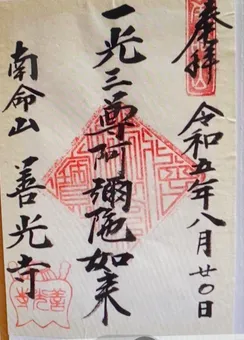 奉拝
令和五年八月廿〇日
一光三尊阿彌陀如来
南命山 善光寺
善光寺